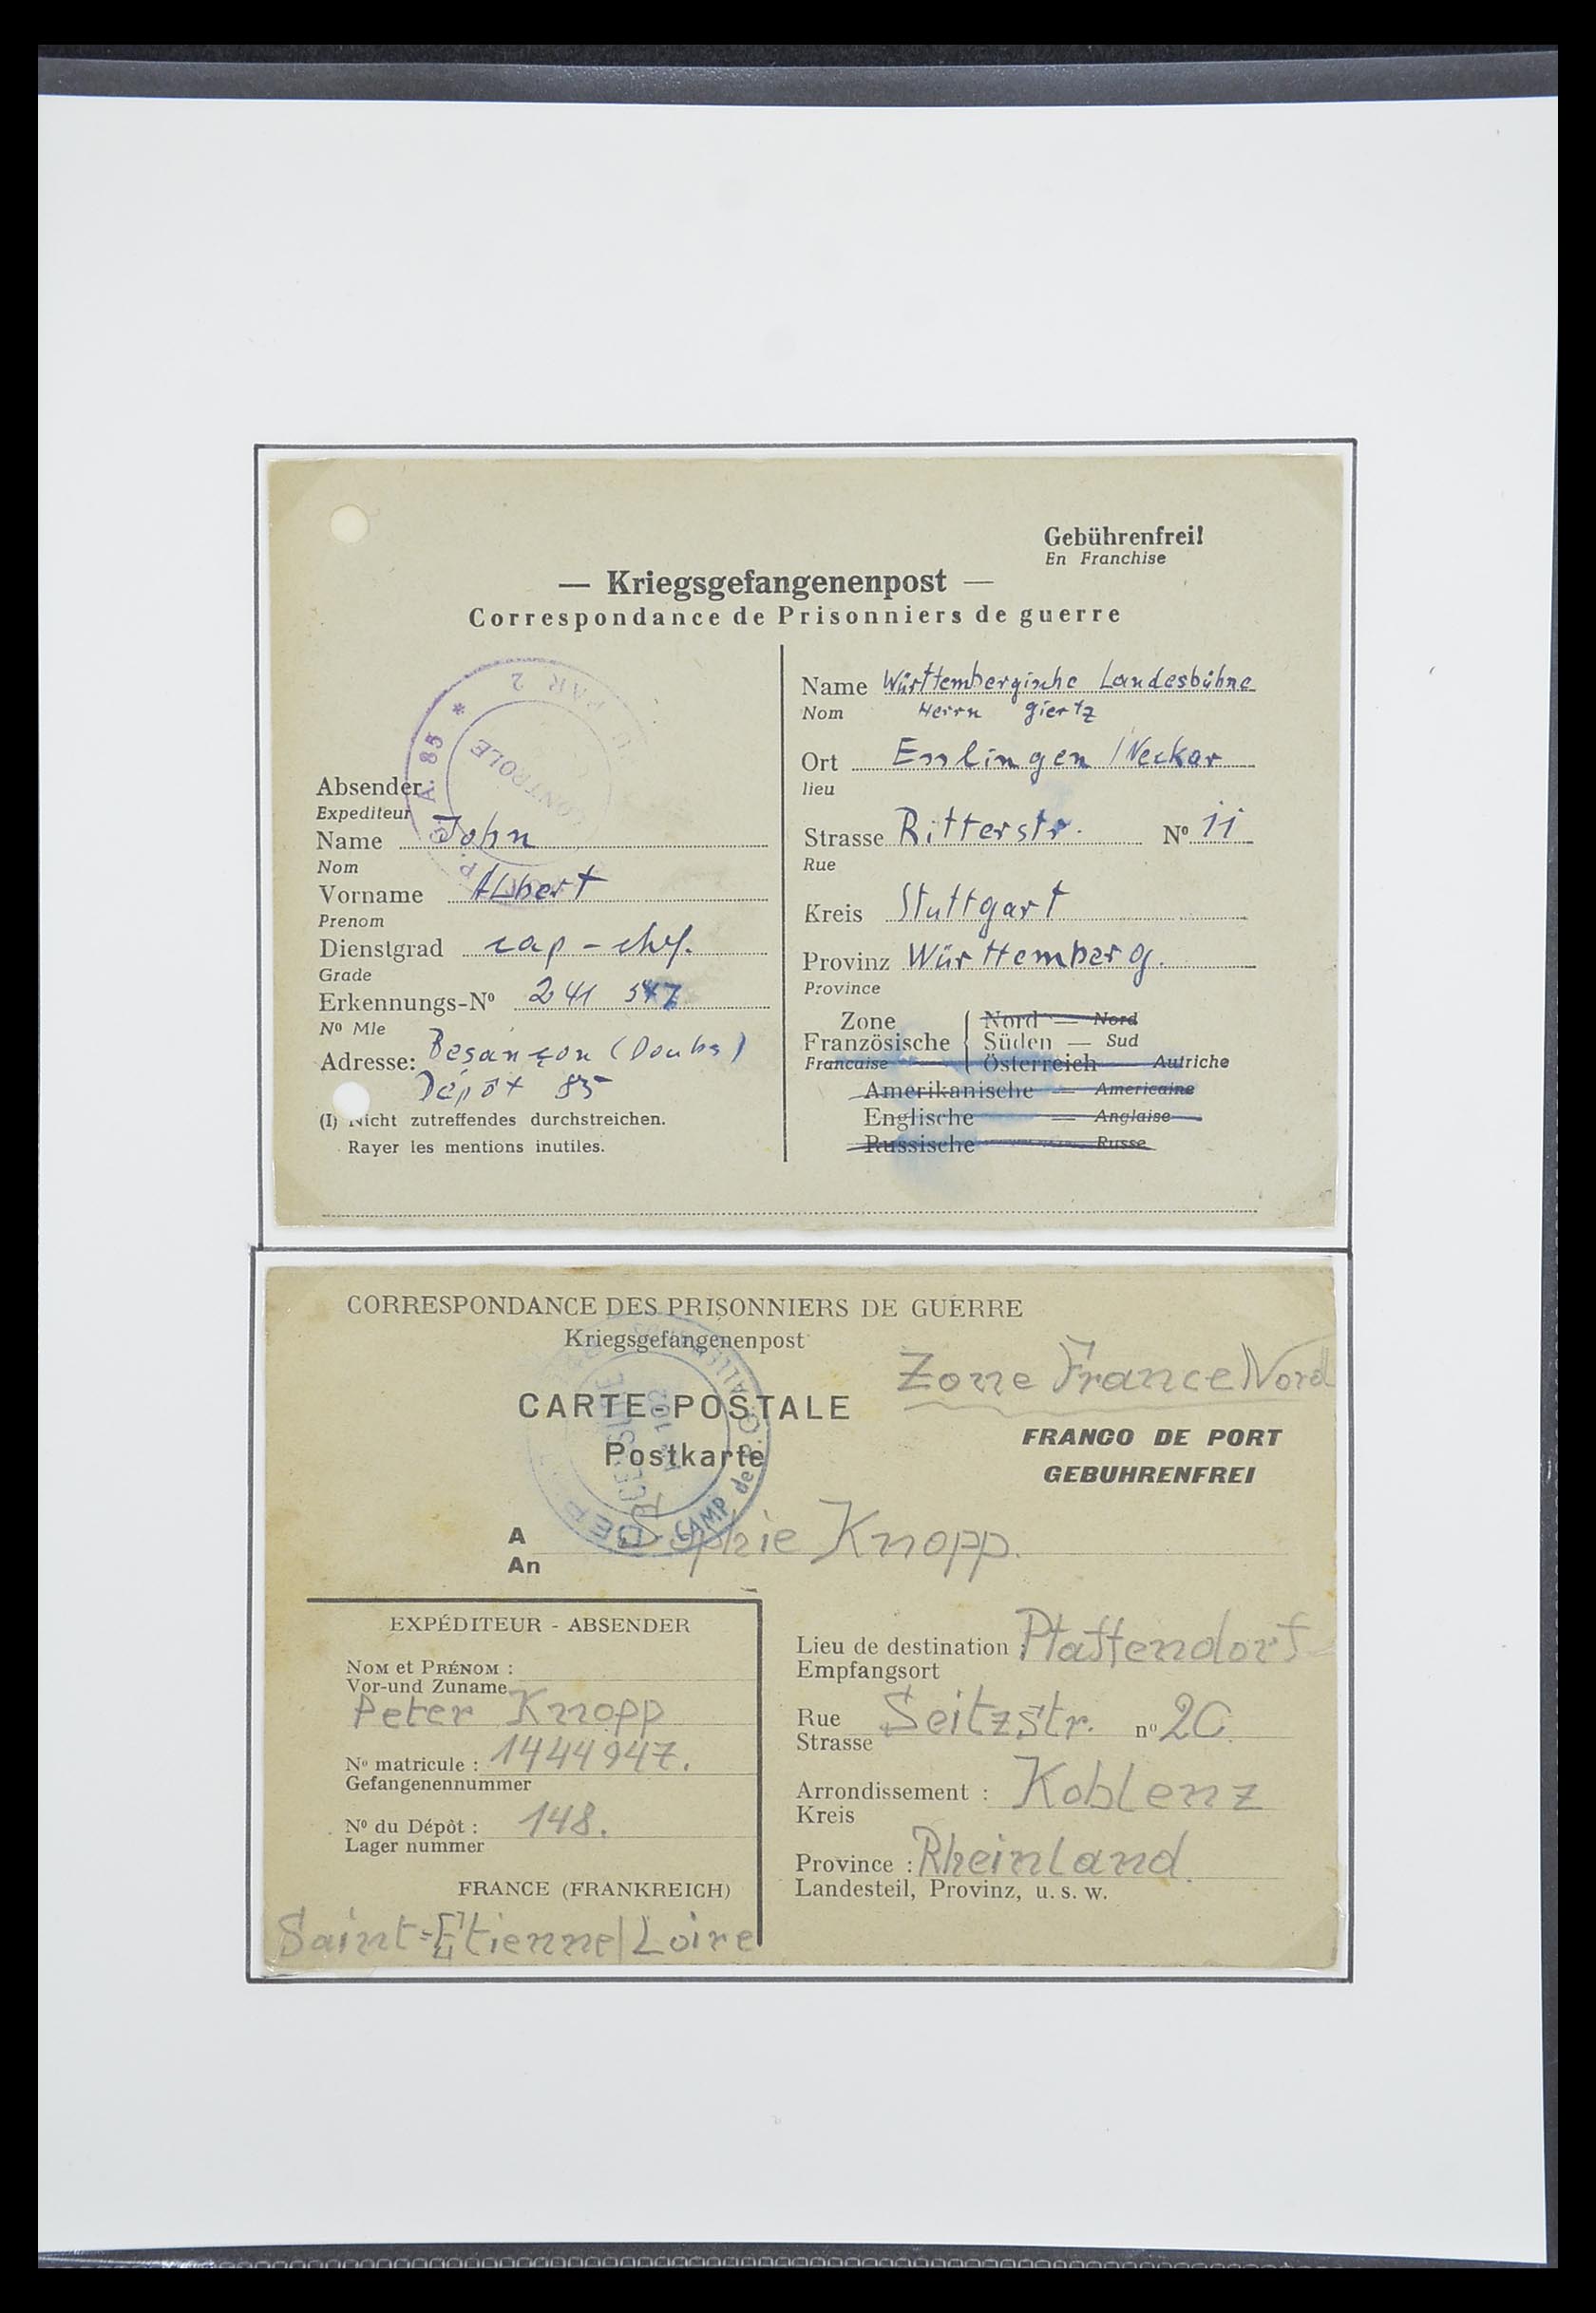 Gebührenfrei!
En Franchise
— Kriegsgefangenenpost —
Correspondance de Prisonniers de guerre
A. 85 * PAR 2
CONTROLE
Absender
Expediteur
Name John
Nom
Vorname Albert
Prenom
Dienstgrad cap-chef.
Grade
Erkennungs-Nº 241 547
Nº Mle
Adresse: Besançon (Doubs)
Dépôt 85
(I) Nicht zutreffendes durchstreichen.
Rayer les mentions inutiles.
Name Württembergische Landesbühne
Nom Herrn Giertz
Ort Esslingen /Neckar
lieu
Strasse Ritterstr. Nº 11
Rue
Kreis Stuttgart
Provinz Württemberg.
Province
Zone Nord — Nord
Französische Süden — Sud
Francaise Österreich — Autriche
Amerikanische — Americaine
Englische — Anglaise
Russische — Russe
CORRESPONDANCE DES PRISONNIERS DE GUERRE
Kriegsgefangenenpost
Zone France Nord
CARTE-POSTALE
Postkarte
FRANCO DE PORT
GEBUHRENFREI
CAMP de P.G.
A Sophie Knopp.
An
EXPÉDITEUR - ABSENDER
Nom et Prénom :
Vor-und Zuname
Peter Knopp
Nº matricule : 1444947.
Gefangenennummer
Nº du Dépôt : 148.
Lager nummer
FRANCE (FRANKREICH)
Saint-Etienne/Loire
Lieu de destination Pfaffendorf
Empfangsort
Rue Seitzstr. nº 20.
Strasse
Arrondissement : Koblenz
Kreis
Province : Rheinland.
Landesteil, Provinz, u. s. w.